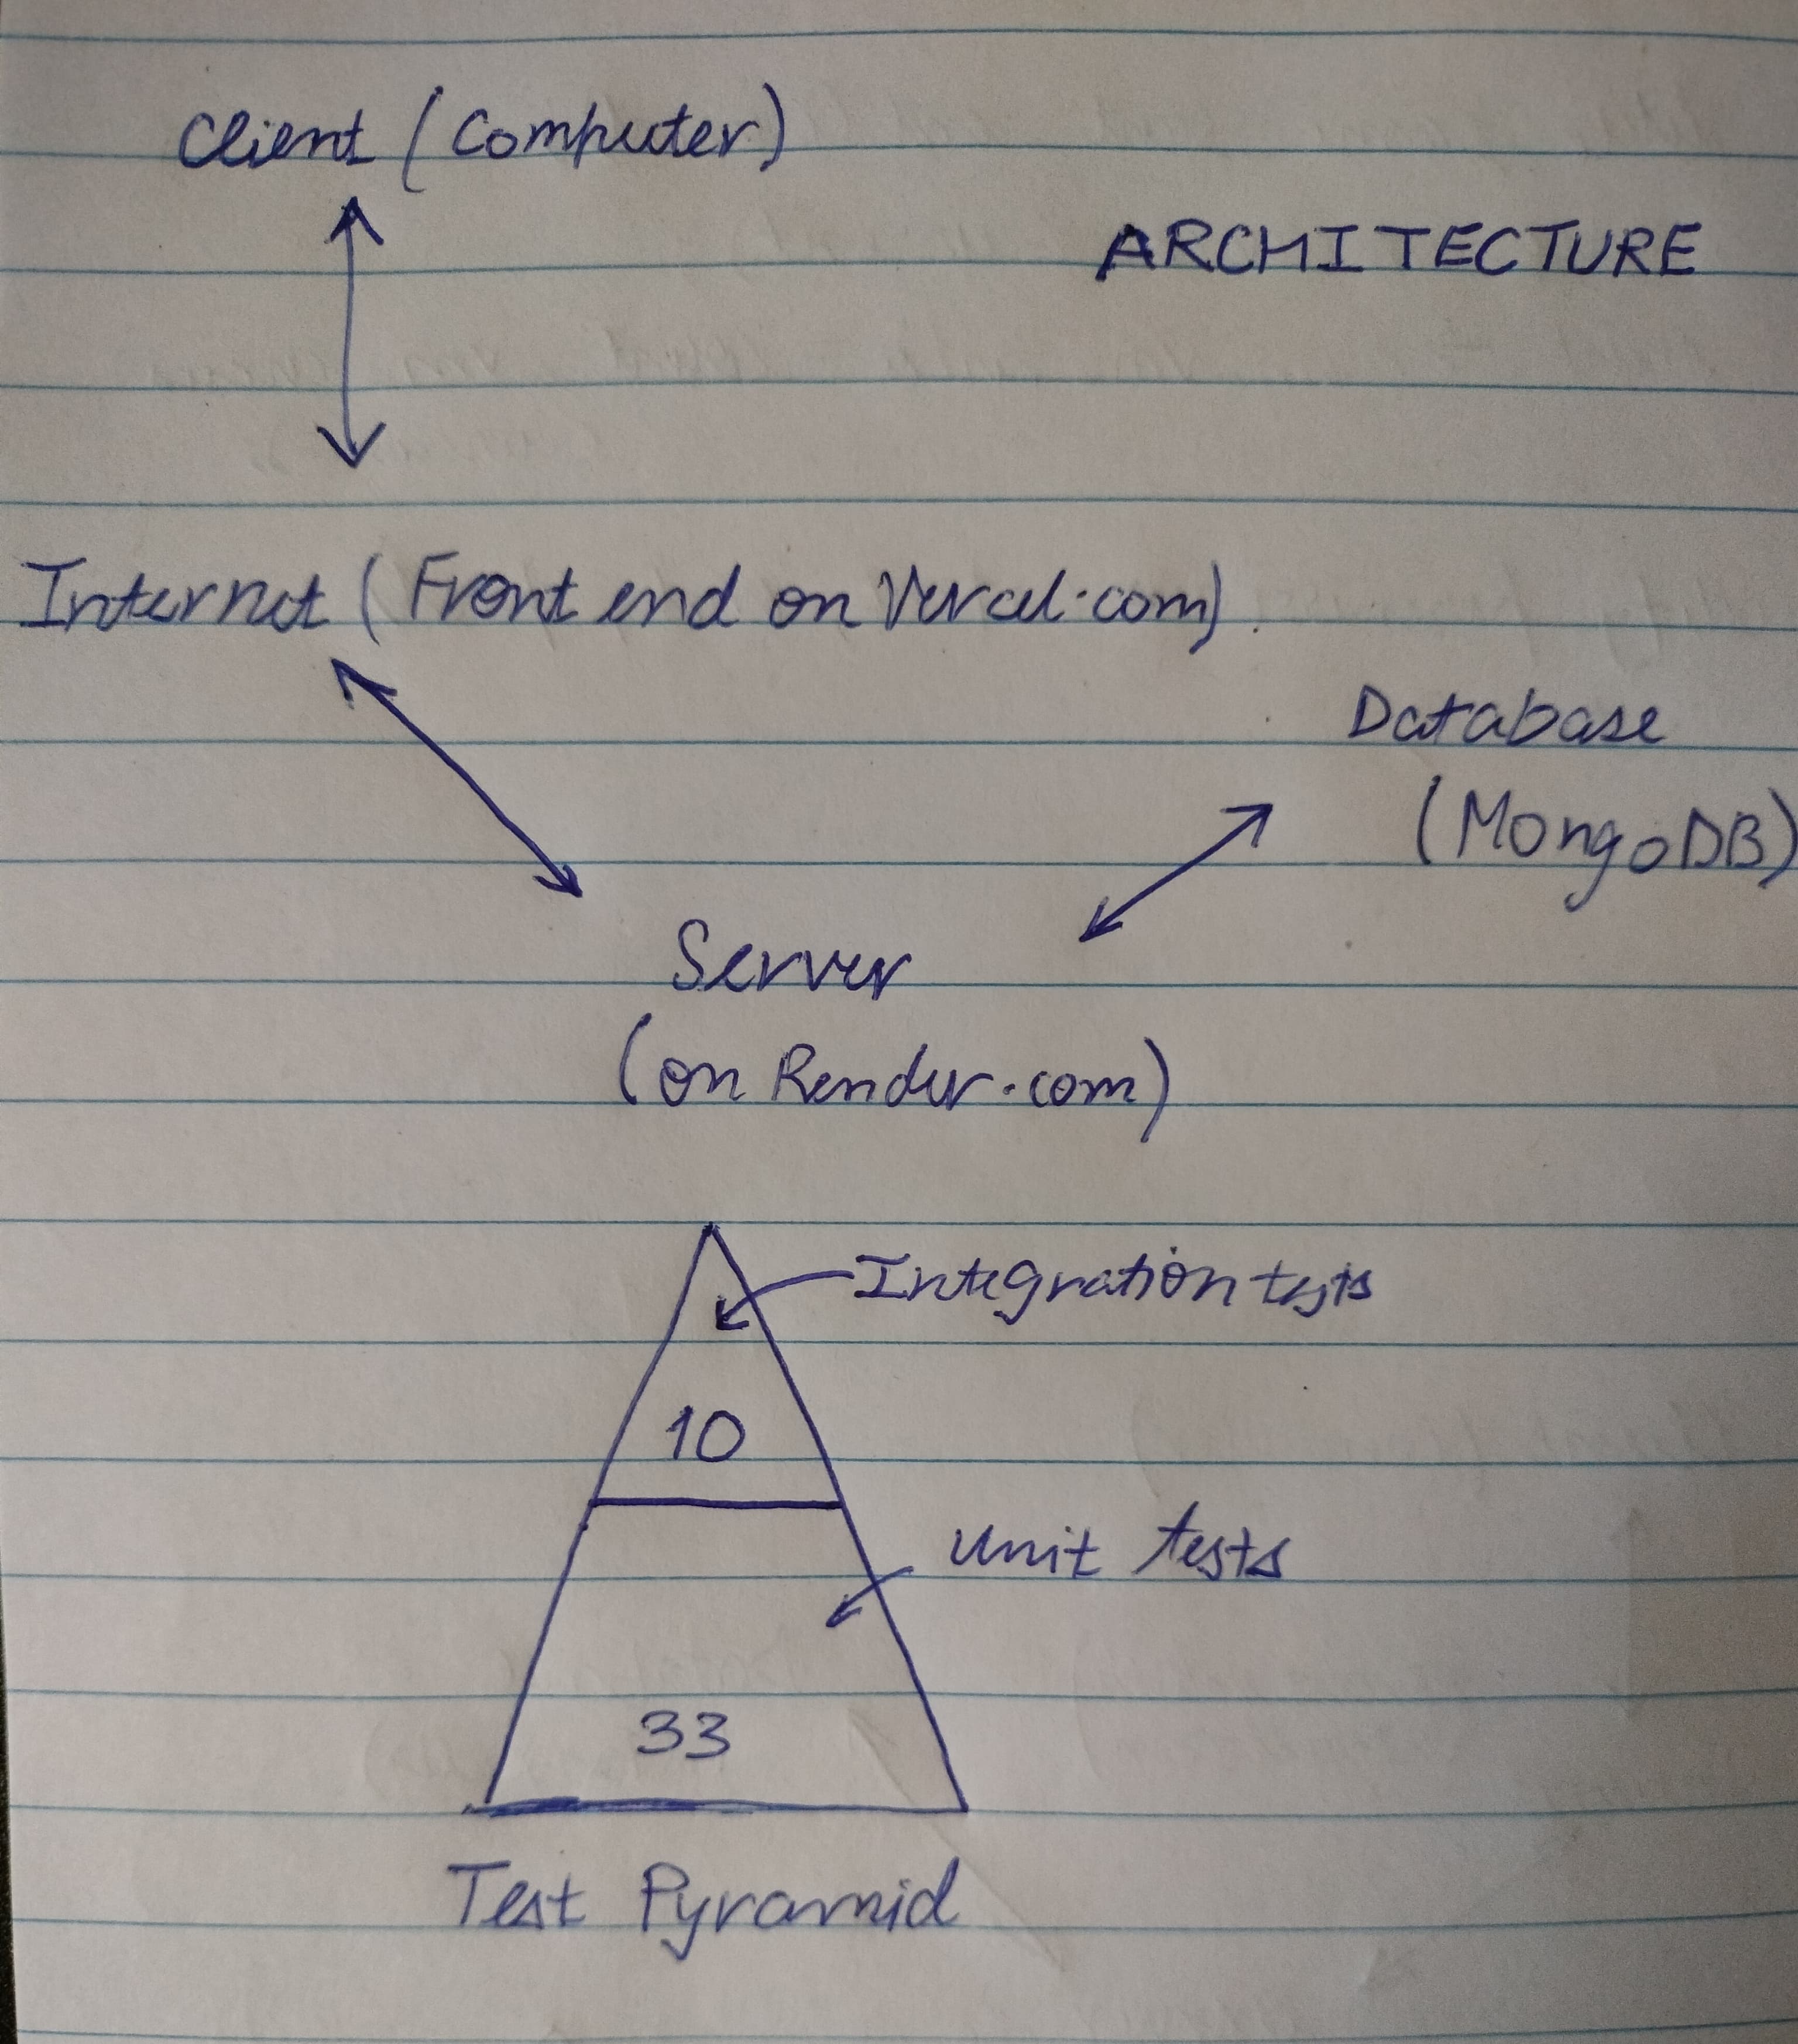 Client (Computer)
ARCHITECTURE
Internet (Front end on Vercel.com).
Database
(MongoDB)
Server
(on Render.com)
Integration tests
10
Unit tests
33
Test Pyramid